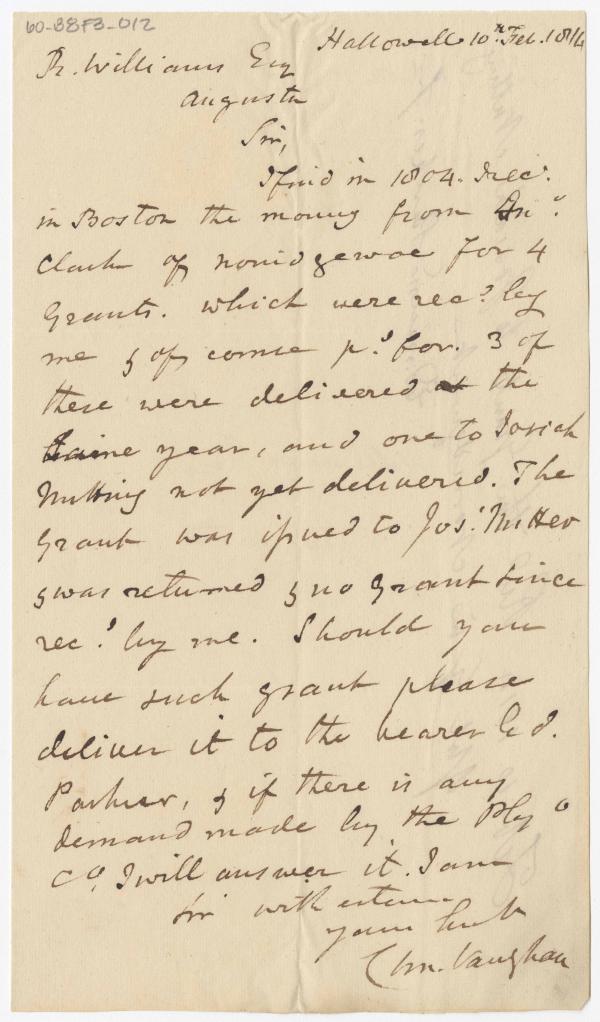 60-88F3-012
Hallowell 10th Feb. 1814
R. Williams Esq
Augusta
Sir,
I find in 1804. Decr.
in Boston the money from
Clark of noridgewoc for 4
Grants. which were recd by
me & of course pd. for. 3 of
these were delivered the
same year, and one to Josiah
Nutting not yet delivered. The
Grant was issued to Jos.
& was returned & no grant since
recd. by me. Should you
have such grant please
deliver it to the bearer
Parker, & if there is any
demand made by the Plyo
Co, I will answer it. I am
Sir with esteem
your
Chs. Vaughan